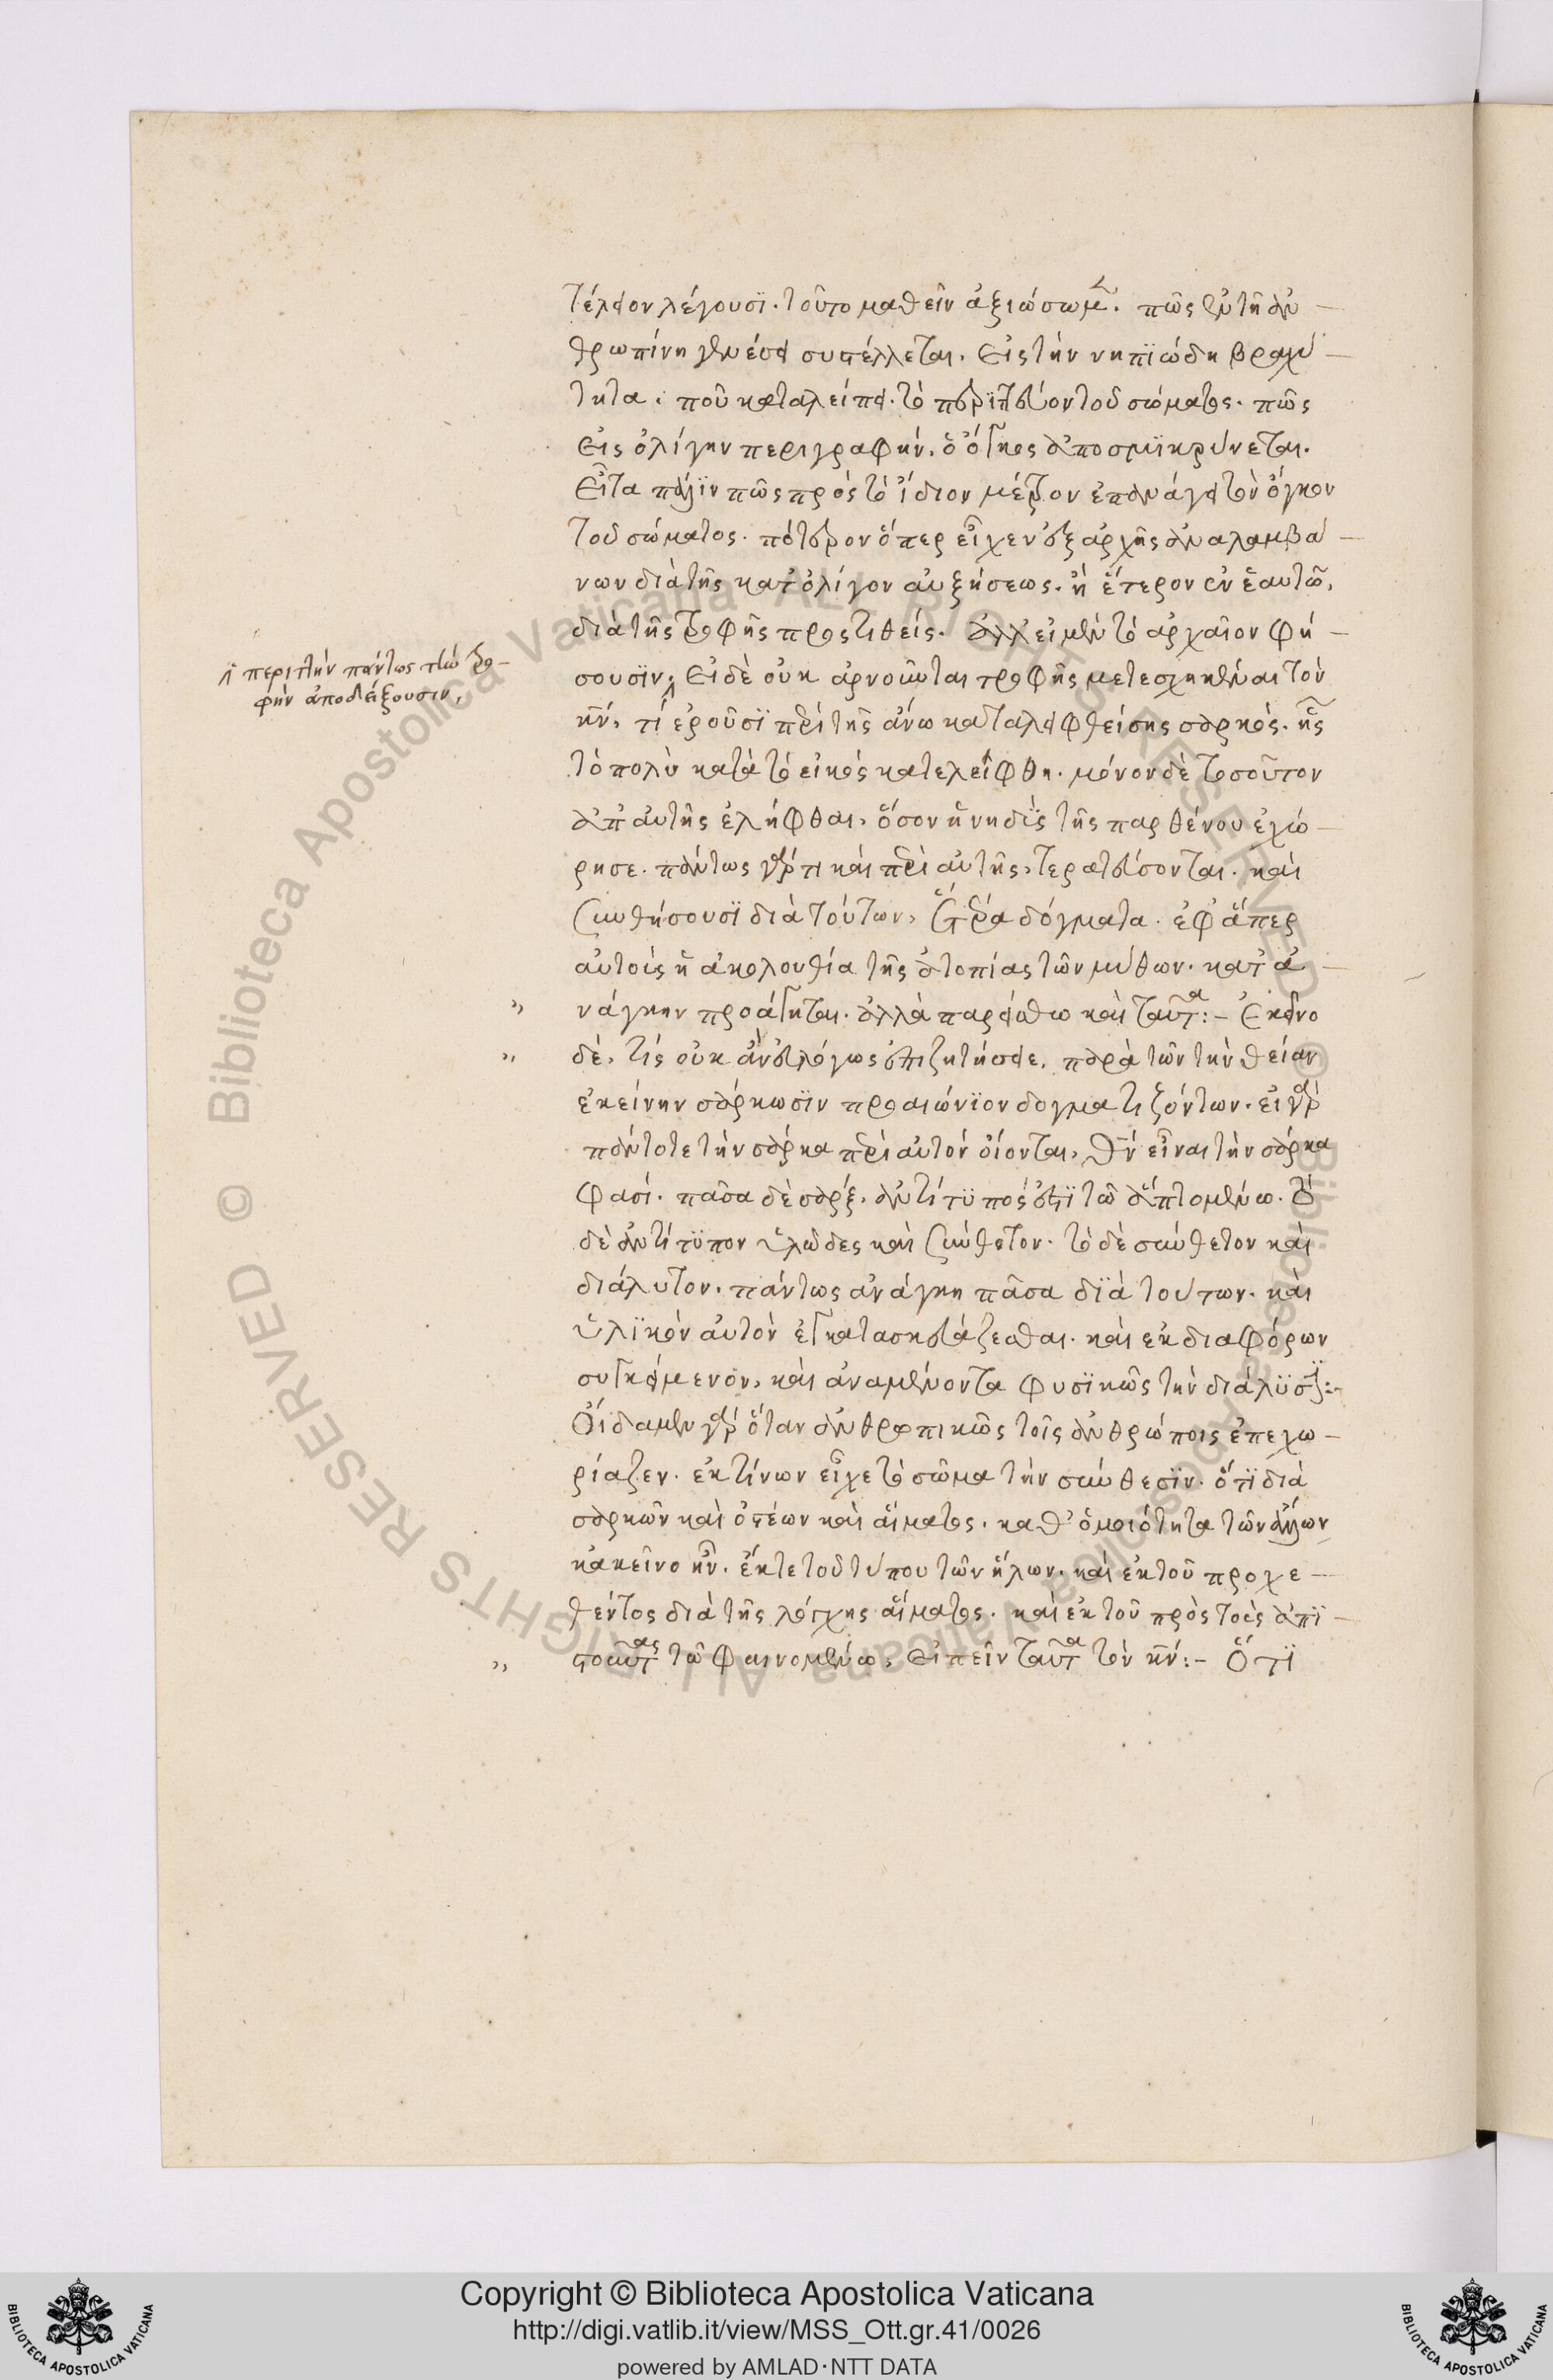 τέλειον λέγουσι· τοῦτο μαθεῖν ἀξιώσωμεν. πῶς ἐν τῇ ἀν
θρωπίνῃ γενέσει συστέλλεται. εἰς τὴν νηπιώδη βραχύ
τητα· ποῦ καταλείπει τὸ περιττεῦον τοῦ σώματος. πῶς
εἰς ὀλίγην περιγραφήν, ὁ ὄγκος ἀποσμικρύνεται.
εἶτα πάλιν πῶς πρὸς τὸ ἴδιον μέτρον ἐπανάγει τὸν ὄγκον
τοῦ σώματος. πότερον ὅπερ εἶχεν ἐξ ἀρχῆς ἀναλαμβά
νων διὰ τῆς κατ' ὀλίγον αὐξήσεως. ἢ ἕτερον ἐν ἑαυτῷ,
διὰ τῆς τροφῆς προςτιθείς. ἀλλ' εἰ μὲν τὸ ἀρχαῖον φή
σουσιν, εἰ δὲ οὐκ ἀρνοῦνται τροφῆς μετεσχηκέναι τὸν
κν, τί ἐροῦσι περὶ τῆς ἄνω καταλειφθείσης σαρκός. ἧς
τὸ πολὺ κατὰ τὸ εἰκὸς κατελείφθη. μόνον δὲ τοσοῦτον
ἀπ' αὐτῆς ἐλήφθαι, ὅσον ἡ νηδὺς τῆς παρθένου ἐχώ
ρησε. πάντως γάρ τι καὶ περὶ αὐτῆς, τερατεύσονται. καὶ
συνθήσουσι διὰ τούτων, ἕτερα δόγματα. ἐφ' ἅπερ
αὐτοῖς ἡ ἀκολουθία τῆς ἀτοπίας τῶν μύθων. κατ' ἀ
νάγκην προάγεται. ἀλλὰ παρείσθω καὶ ταῦτα:- Ἐκεῖνο
δὲ, τίς οὐκ ἂν εὐλόγως ἐπιζητήσειε, παρὰ τῶν τὴν θείαν
ἐκείνην σάρκωσιν προαιώνιον δογματιζόντων. εἰ γὰρ
πάντοτε τὴν σάρκα περὶ αὐτὸν οἴονται, θν εἶναι τὴν σάρκα
φασί. πᾶσα δὲ σὰρξ, ἀντίτυπός ἐστι τῷ ἁπτομένῳ. τὸ
δὲ ἀντίτυπον ὑλῶδες καὶ σύνθετον. τὸ δὲ σύνθετον καὶ
διάλυτον. πάντως ἀνάγκη πᾶσα διὰ τούτων. καὶ
ὑλικὸν αὐτὸν ἐγκατασκευάζεσθαι. καὶ ἐκ διαφόρων
συγκείμενον, καὶ ἀναμένοντα φυσικῶς τὴν διάλυσιν:-
Οἴδαμεν γὰρ ὅταν ἀνθρωπικῶς τοῖς ἀνθρώποις ἐπεχω
ρίαζεν. ἐκ τίνων εἶχε τὸ σῶμα τὴν σύνθεσιν. ὅτι διὰ
σαρκῶν καὶ ὀστέων καὶ αἵματος. καθ' ὁμοιότητα τῶν ἄλλων
κἀκεῖνο ἦν. ἔκ τε τοῦ τύπου τῶν ἥλων. καὶ ἐκ τοῦ προχε
θέντος διὰ τῆς λόγχης αἵματος. καὶ ἐκ τοῦ πρὸς τοὺς ἀπι
στοῦντας τῷ φαινομένῳ, εἰπεῖν ταῦτα τὸν κν:- Ὅτι
περιττὴν πάντως τὴν τρο
φὴν ἀποδείξουσιν,
Copyright © Biblioteca Apostolica Vaticana
http://digi.vatlib.it/view/MSS_Ott.gr.41/0026
powered by AMLAD·NTT DATA
BIBLIOTECA APOSTOLICA VATICANA
BIBLIOTECA APOSTOLICA VATICANA
© Biblioteca Apostolica Vaticana ALL RIGHTS RESERVED
© Biblioteca Apostolica Vaticana ALL RIGHTS RESERVED